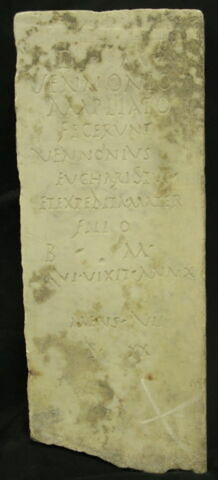 VENNONIO
AMPLIATO
FECERVNT
VENNONIVS
EVCHARIST
ET EXPEDITA MATER
FILIO
B M
QVI VIXIT ANN X
MENS VII
XX